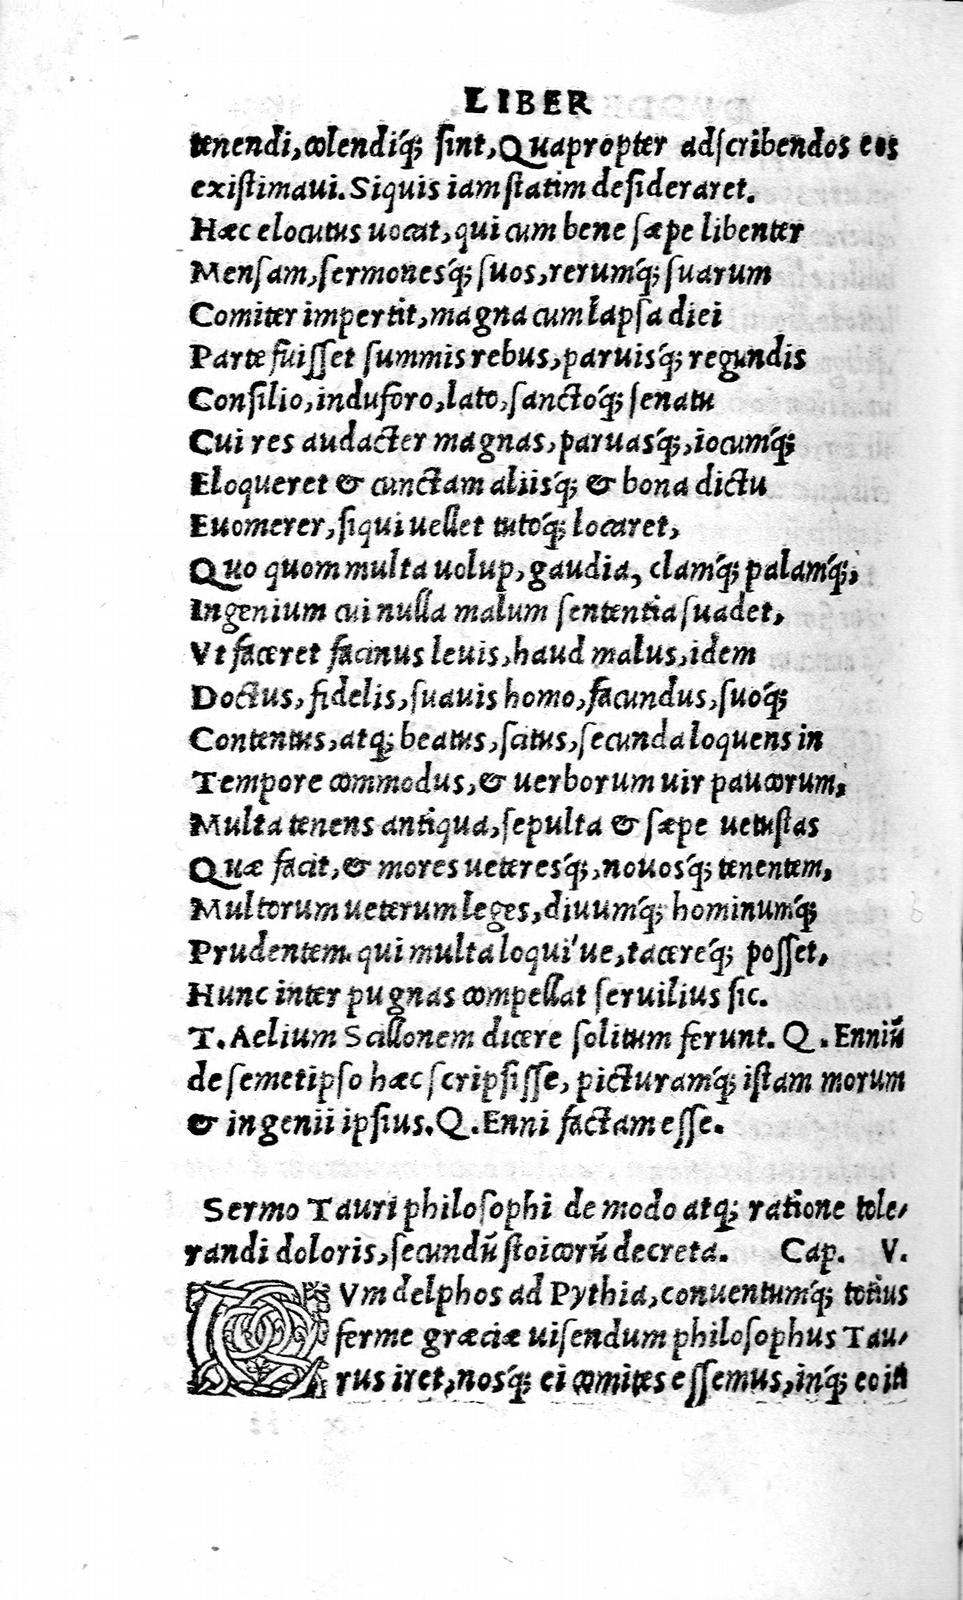 LIBER
tenendi, colendiq́; sint, Quapropter adscribendos eos
existimaui. Siquis iam statim desideraret.
Hæc elocutus uocat, qui cum bene sæpe libenter
Mensam, sermonesq́; suos, rerumq́; suarum
Comiter impertit, magna cum lapsa diei
Parte fuisset summis rebus, paruisq́; regundis
Consilio, induforo, lato, sanctoq́; senatu
Cui res audacter magnas, paruasq́;, iocumq́;
Eloqueret & cunctam aliisq́; & bona dictu
Euomerer, siqui uellet tutoq́; locaret,
Quo quom multa uolup, gaudia, clamq́; palamq́;,
Ingenium cui nulla malum sententia suadet,
Vt faceret facinus leuis, haud malus, idem
Doctus, fidelis, suauis homo, facundus, suoq́;
Contentus, atq; beatus, scitus, secunda loquens in
Tempore commodus, & uerborum uir paucorum,
Multa tenens antiqua, sepulta & sæpe uetustas
Quæ facit, & mores ueteresq́;, nouosq́; tenentem,
Multorum ueterum leges, diuumq́; hominumq́;
Prudentem. qui multa loqui'ue, tacereq́; posset,
Hunc inter pugnas compellat seruilius sic.
T. Aelium Scillonem dicere solitum ferunt. Q. Enniū
de semetipso hæc scripsisse, picturamq́; istam morum
& ingenii ipsius. Q. Enni factam esse.
Sermo Tauri philosophi de modo atq; ratione tole,
randi doloris, secundū stoicorū decreta. Cap. V.
CVm delphos ad Pythia, conuentumq́; totius
ferme græciæ uisendum philosophus Tau,
rus iret, nosq́; ei comites essemus, inq́; eo iti